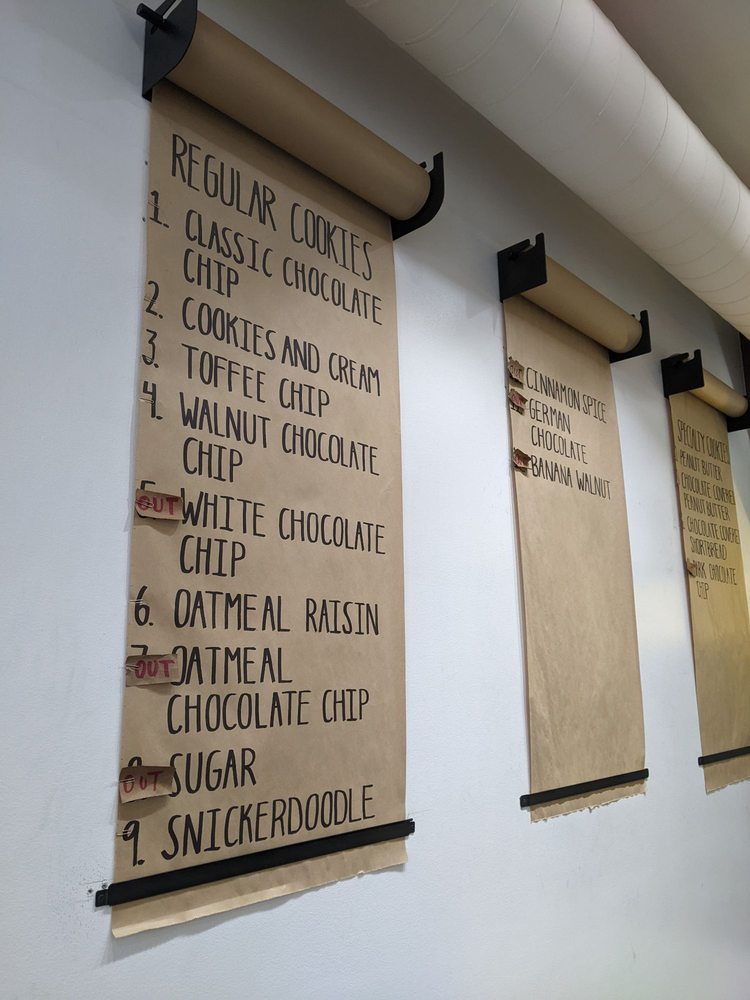 REGULAR COOKIES
1. CLASSIC CHOCOLATE
CHIP
2. COOKIES AND CREAM
3. TOFFEE CHIP
4. WALNUT CHOCOLATE
CHIP
OUT WHITE CHOCOLATE
CHIP
6. OATMEAL RAISIN
OUT OATMEAL
CHOCOLATE CHIP
OUT SUGAR
9. SNICKERDOODLE
CINNAMON SPICE
GERMAN
CHOCOLATE
BANANA WALNUT
SPECIALTY COOKIES
PEANUT BUTTER
CHOCOLATE COVERED
PEANUT BUTTER
CHOCOLATE COVERED
SHORTBREAD
DARK CHOCOLATE
CHIP